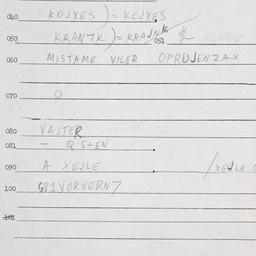 040 KOJXES ) = KEJXES
050 KRANTK ) = KRAJNK
051
060 MISTAME VILER OPRUJENZAX
070 Q
080 VAJTER
081 - Q S+EN
090 A XEJLE /XEJLE
100 GS1VORVERN7
101